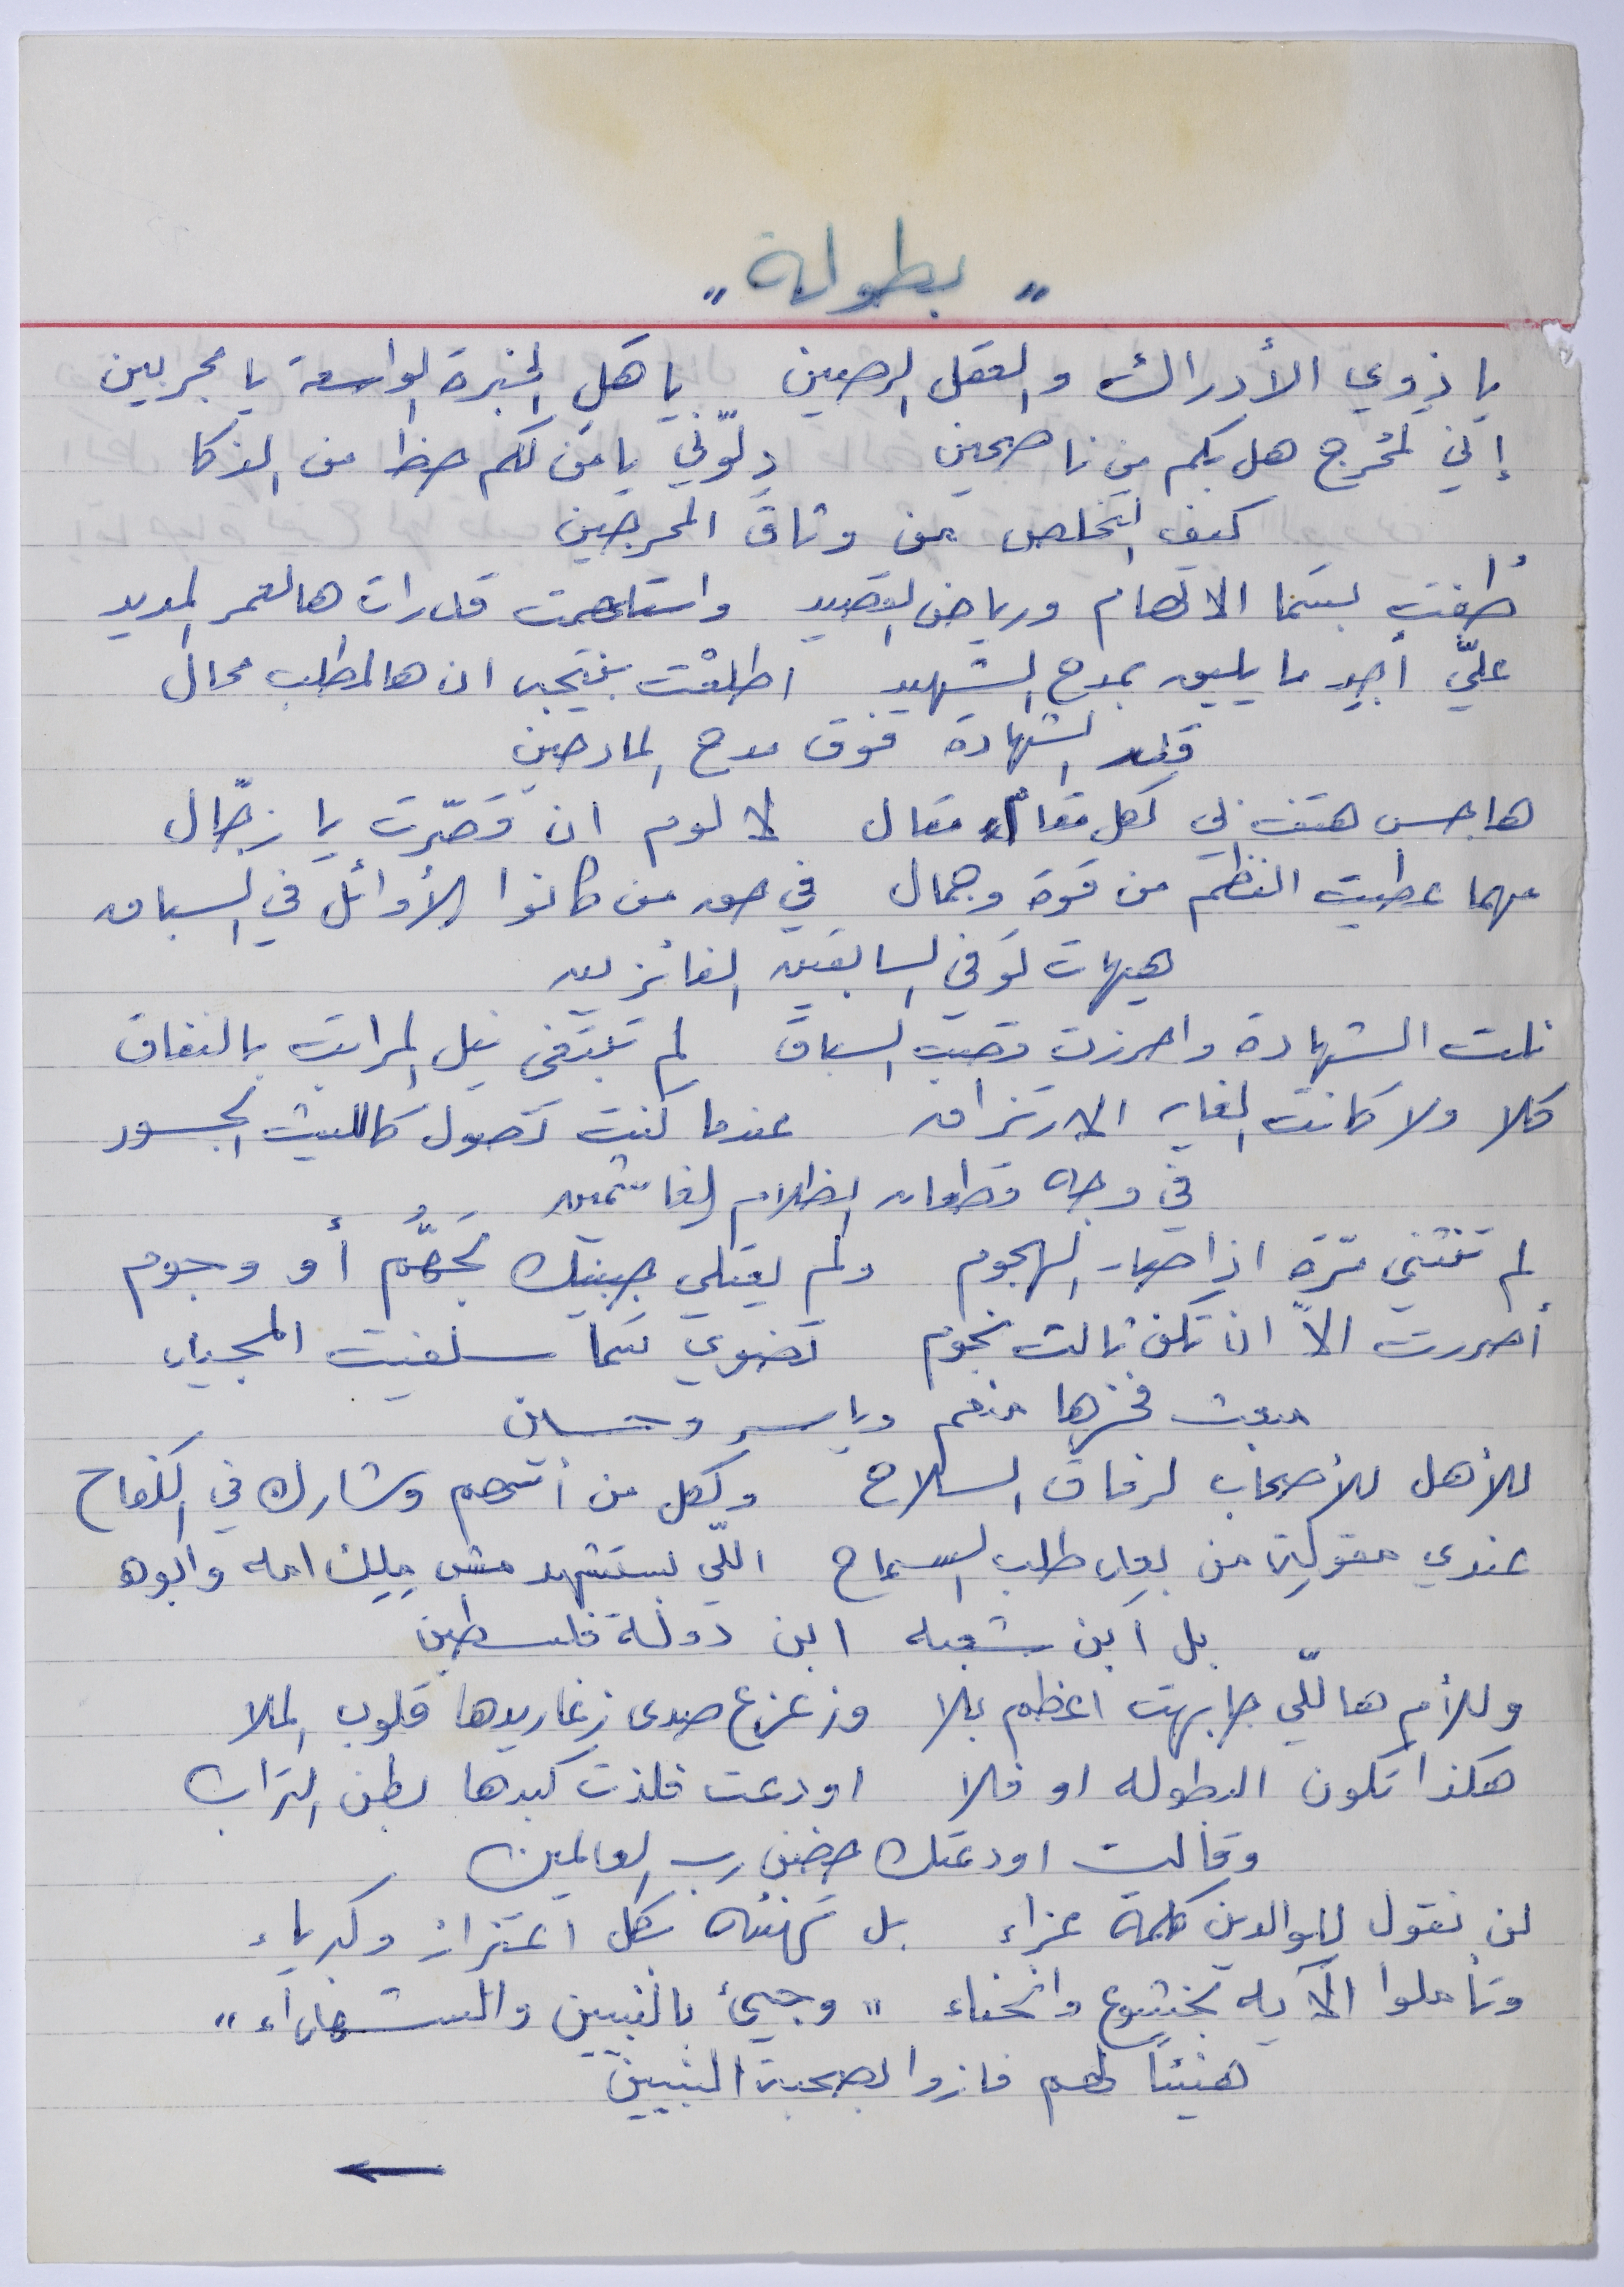 " بطولة "
يا ذوي الأدراك والعقل الرصين يا هَل الخبرة الواسعة يا مجربين
إنّي لمُحرج هل بكم من ناصحين دلّوني يا مَن لكم حظا من الذكا
كيف اتخلص من وثاق المحرجين
طُفت بسَما الالهام ورياض القصيد واستلهمت قدرات هالعمر المديد
علّي أجيد ما يليق بمدح الشهيد اطلعْت بنتيجه ان هالمطلب محال
قيد الشهادة فوق مدح المادحين
هاجس هتف لي لكل مقام مقال لا لوم ان قصّرت يا زجّال
مهما عطيت النظم من قوة وجمال في حق من كانوا الأوائل في السباق
هيهات توفي السابقين الفائزين
نلت الشهادة واحرزت قصب السباق لم تبتغى نيل المراتب بالنفاق
كلا ولا كانت الغايه الارتزاق عندما كنت تصول كالليث الجسور
في وجه قطعان الظلام الغاشمين
لم تنثني مرّة اذا صار الهجوم ولم يعتلي جبينك تجهُّم أو وجوم
أصررت الاّ ان تكن ثالث نجوم تضوي سَما سلفيت المجيده
مبعث فخرها منعم وياسر وحسان
للأهل للأصحاب لرفاق السلاح ولكل من أتهم وشارك في الكفاح
عندي مقولة من بعد طلب السماح اللّي يستشهد مش ملك امه وابوه
بل ابن شعبه ابن دولة فلسطين
وللأم هاللّي جابهت اعظم بلا وزعزع صدى زغاريدها قلوب الملا
هكذا تكون البطوله او فلا اودعت فلذت كبدها بطن التراب
وقالت اودعتك حضن رب العالمين
لن نقول للوالدين كلمة عزاء بل تهنئه بكل اعتزاز وكبرياء
وتأملوا الآيه بخشوع وانحناء " وجيئ بالنبيين والشهدآء "
هنيئاً لهم فازوا بصحبة النبيين
←